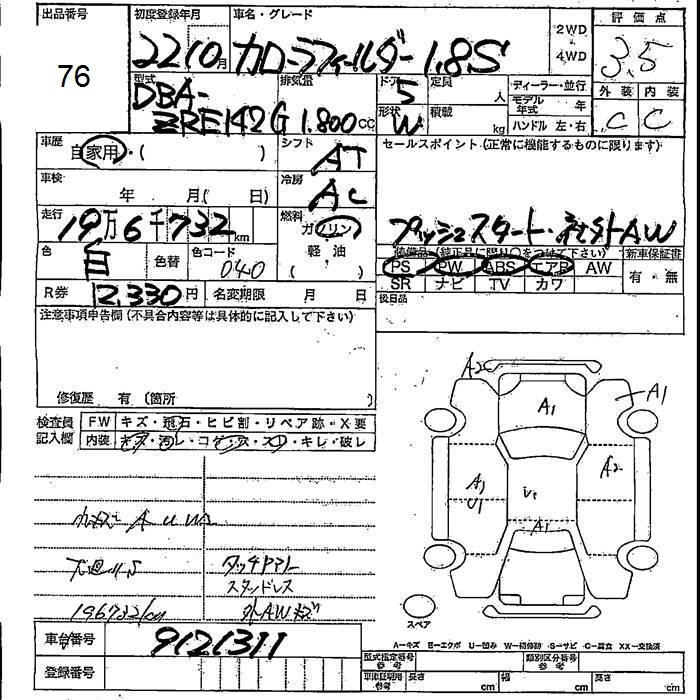 出品番号
76
初度登録年月
22 10月
車名・グレード
カローラフィールダー 1.8S
2WD
4WD
評価点
3.5
外装 内装
C C
型式
DBA-
ZRE142G
排気量
1.800cc
ドア
5
形状
W
定員
人
積載
kg
ディーラー・並行
モデル年式 年
ハンドル 左・右
車歴
自家用・( )
シフト
AT
セールスポイント(正常に機能するものに限ります)
プッシュスタート・社外AW
車検
年 月( 日)
冷房
AC
走行
19万6千732km
燃料
ガソリン
軽油
( )
色
白
色替
色コード
040
装備品(純正品に限り○をつけて下さい)
PS PW ABS エアB AW
SR ナビ TV カワ
新車保証書
有・無
R券 12,330円
名変期限 月 日
後日品
注意事項申告欄(不具合内容等は具体的に記入して下さい)
修復歴 有 (箇所 )
検査員記入欄
FW キズ・飛石・ヒビ割・リペア跡・X要
内装 キズ・汚レ・コゲ・穴・スレ・キレ・破レ
AUW
下廻りS
196732km
タッチアトレ
スタッドレス
外AWキズ
A2
A1
A1
A1
U1
A2
A1
スペア
A-キズ E-エクボ U-凹み W-補修跡 S-サビ C-腐食 XX-交換済
車台番号 9121311
登録番号
型式指定番号 参考
類別区分番号 参考
車庫証明用 参考
長さ cm
幅 cm
高さ cm